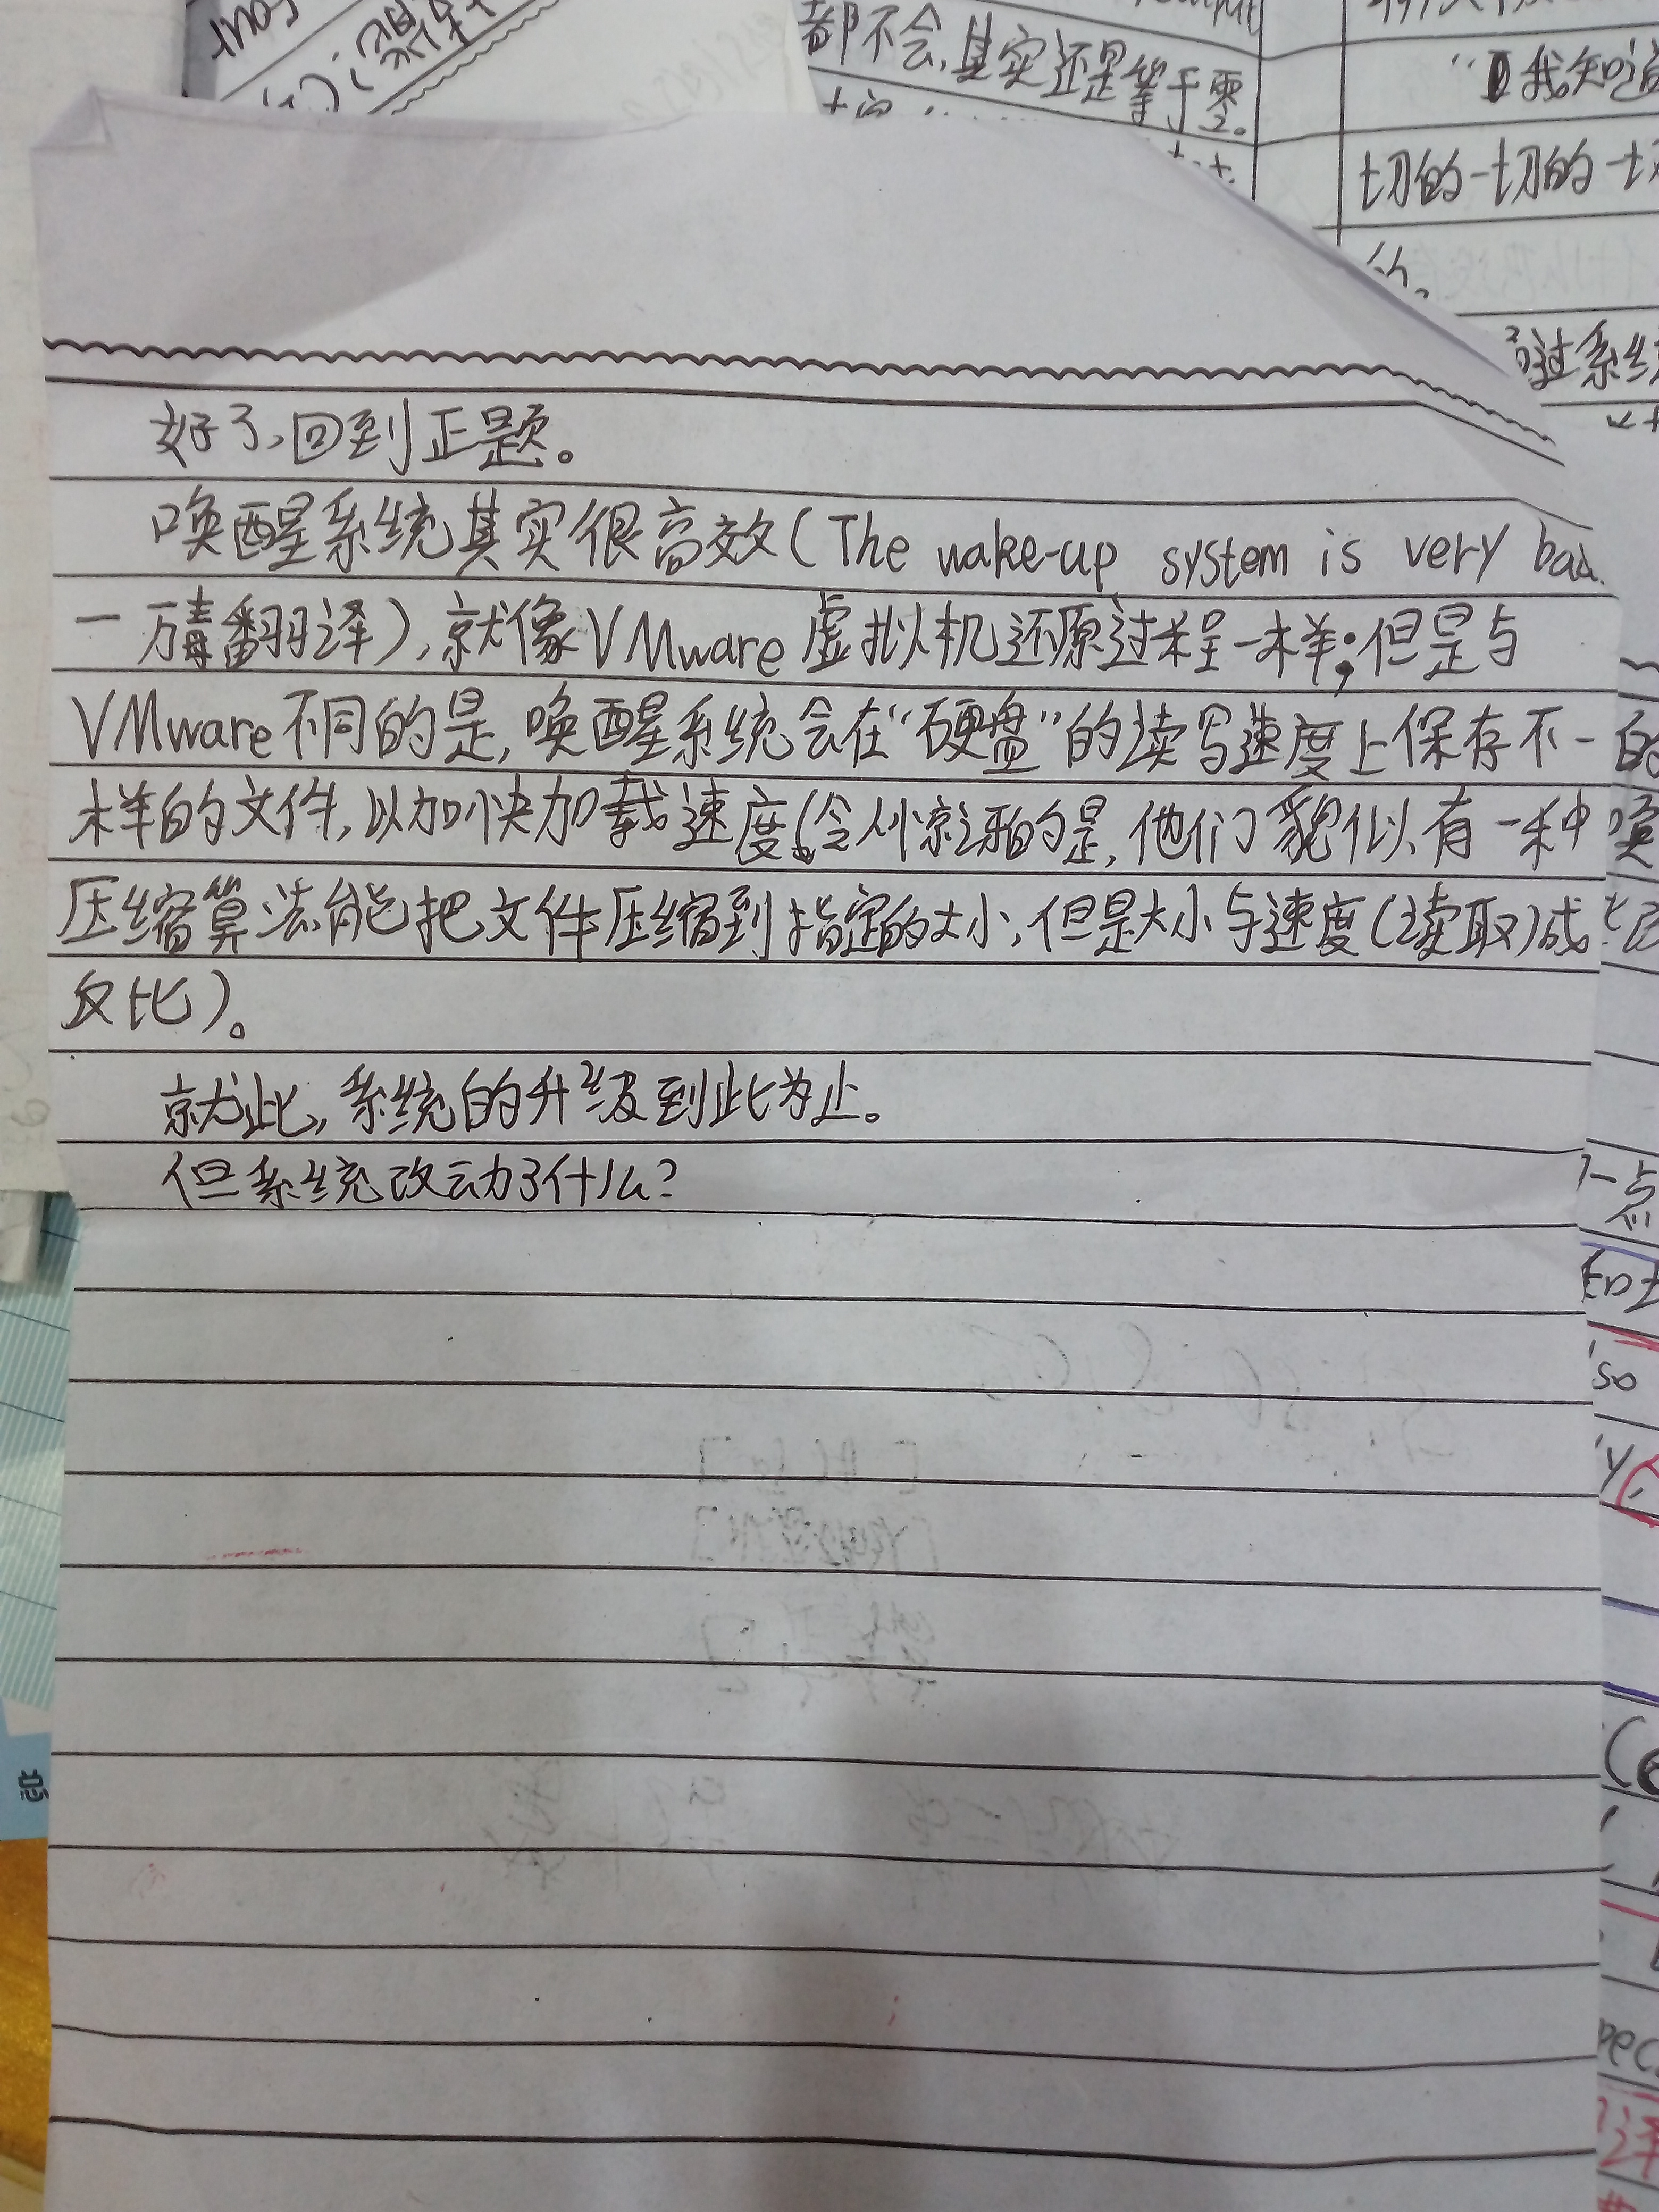 都不会,其实还是等于零。
“我知道
切的一切的一切
的。
过系统
好了,回到正题。
唤醒系统其实很高效(The wake-up system is very bad.
一万毒翻译),就像VMware虚拟机还原过程一样;但是与
VMware不同的是,唤醒系统会在“硬盘”的读写速度上保存不一
样的文件,以加快加载速度(令人惊讶的是,他们貌似有一种
压缩算法能把文件压缩到指定的大小,但是大小与速度(读取)成
反比)。
就此,系统的升级到此为止。
但系统改动了什么?
的
唤
一点
so
y,
总